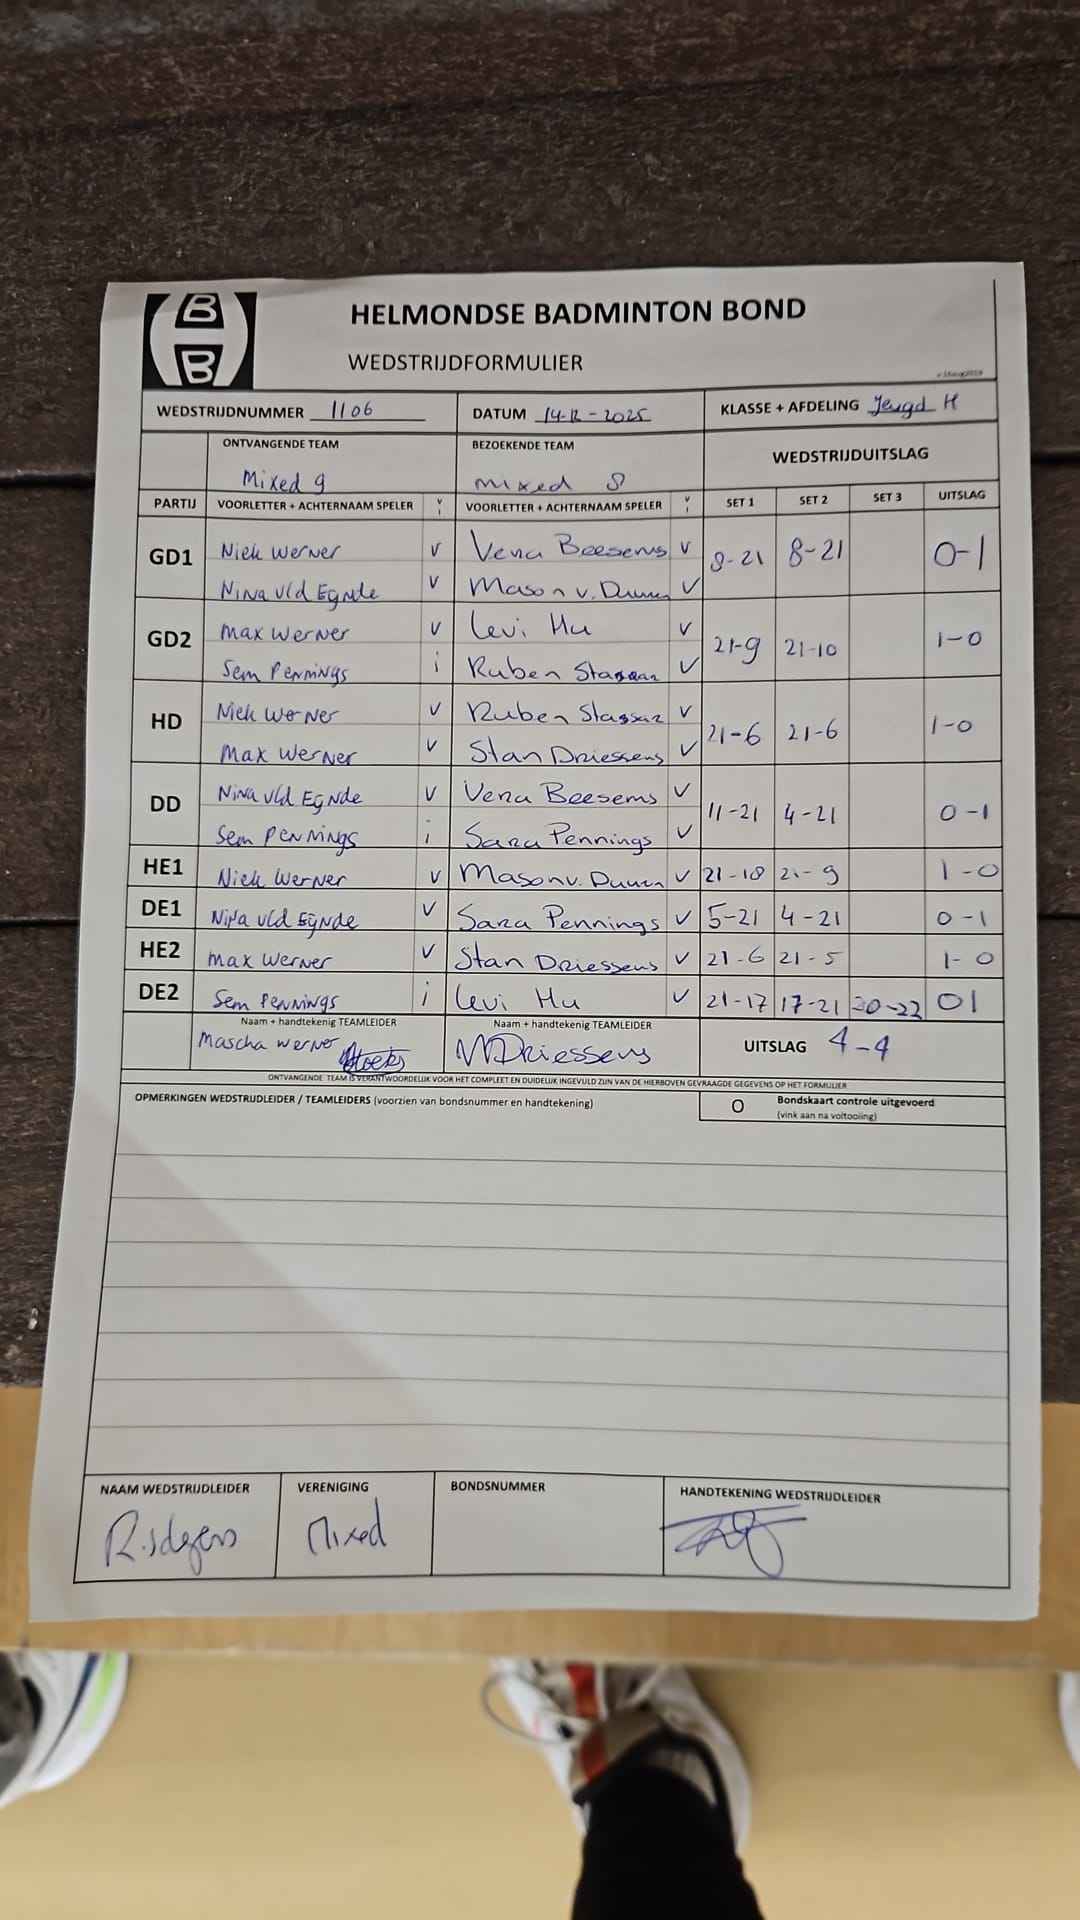 B
B
HELMONDSE BADMINTON BOND
WEDSTRIJDFORMULIER
WEDSTRIJDNUMMER 1106 DATUM 14-12-2025 KLASSE + AFDELING Jeugd H
ONTVANGENDE TEAM BEZOEKENDE TEAM WEDSTRIJDUITSLAG
Mixed 9 mixed 8
PARTIJ VOORLETTER + ACHTERNAAM SPELER v i VOORLETTER + ACHTERNAAM SPELER v i SET 1 SET 2 SET 3 UITSLAG
GD1 Niek Werner v Vera Beesems v 8-21 8-21 0-1
Nina vld Eynde v Mason v. Duuren v
GD2 Max Werner v Levi Hu v 21-9 21-10 1-0
Sem Pennings i Ruben Stassar v
HD Niek Werner v Ruben Stassar v 21-6 21-6 1-0
Max Werner v Stan Driessens v
DD Nina vld Eynde v Vera Beesems v 11-21 4-21 0-1
Sem Pennings i Sara Pennings v
HE1 Niek Werner v Mason v. Duuren v 21-18 21-9 1-0
DE1 Nina vld Eynde v Sara Pennings v 5-21 4-21 0-1
HE2 Max Werner v Stan Driessens v 21-6 21-5 1-0
DE2 Sem Pennings i Levi Hu v 21-17 17-21 20-22 01
Naam + handtekenig TEAMLEIDER Naam + handtekenig TEAMLEIDER UITSLAG 4-4
Mascha Werner Driessens
ONTVANGENDE TEAM IS VERANTWOORDELIJK VOOR HET COMPLEET EN DUIDELIJK INGEVULD ZIJN VAN DE HIERBOVEN GEVRAAGDE GEGEVENS OP HET FORMULIER
OPMERKINGEN WEDSTRIJDLEIDER / TEAMLEIDERS (voorzien van bondsnummer en handtekening) O Bondskaart controle uitgevoerd
(vink aan na voltooiing)
NAAM WEDSTRIJDLEIDER VERENIGING BONDSNUMMER HANDTEKENING WEDSTRIJDLEIDER
Mixed